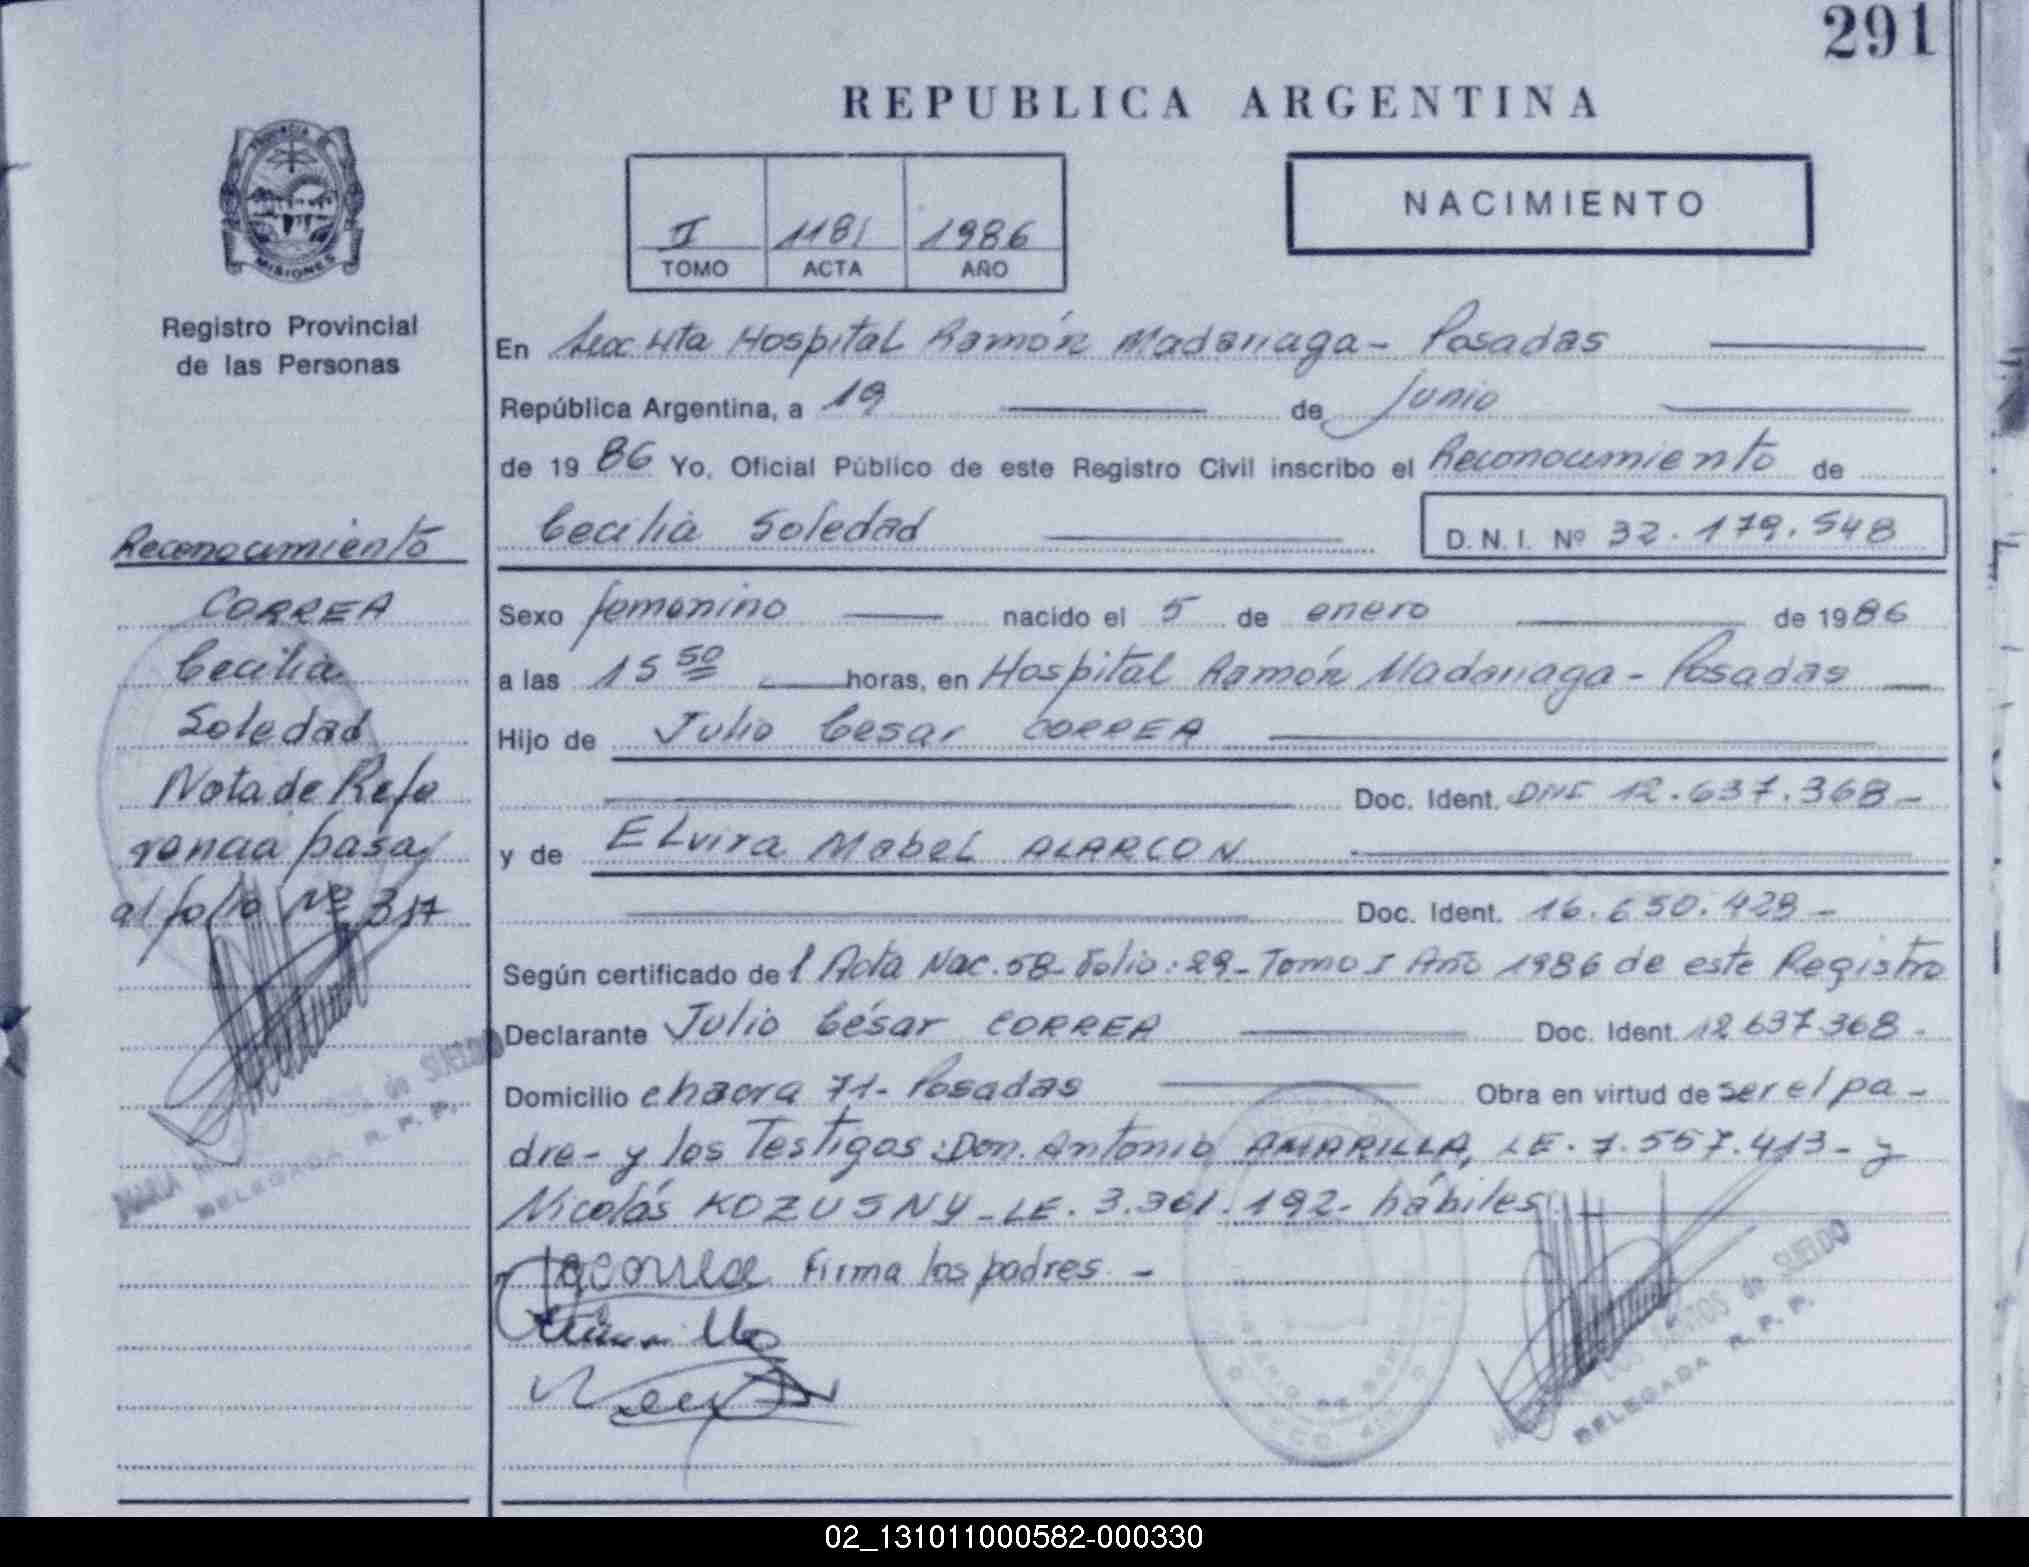 291
REPUBLICA ARGENTINA
PROVINCIA
MISIONES
Registro Provincial
de las Personas
I 1181 1986
TOMO ACTA AÑO
NACIMIENTO
En Hospital Ramón Madariaga - Posadas
República Argentina, a 19 de Junio
de 1986 Yo, Oficial Público de este Registro Civil inscribo el Reconocimiento de
Cecilia Soledad
D. N. I. Nº 32.179.548
Reconocimiento
CORREA
Cecilia
Soledad
Nota de Refe
rencia pasa
al folio Nº 317
Sexo femenino nacido el 5 de enero de 1986
a las 15 50 horas, en Hospital Ramón Madariaga - Posadas
Hijo de Julio Cesar CORREA
Doc. Ident. DNI 12.637.368-
y de ELvira MabeL ALARCON
Doc. Ident. 16.650.428-
Según certificado del Acta Nac. 58- Folio: 29- Tomo I Año 1986 de este Registro
Declarante Julio César CORREA Doc. Ident. 12637368-
Domicilio chacra 71- Posadas Obra en virtud de ser el pa-
dre- y los Testigos: Don. Antonio AMARILLA, LE. 7.557.413- y
Nicolás KOZUSNY- LE. 3.361.192- hábiles
Firma los padres -
de SUELDO
DELEGADA R. P. P.
SANTOS de SUELDO
DELEGADA R. P. P.
02_131011000582-000330